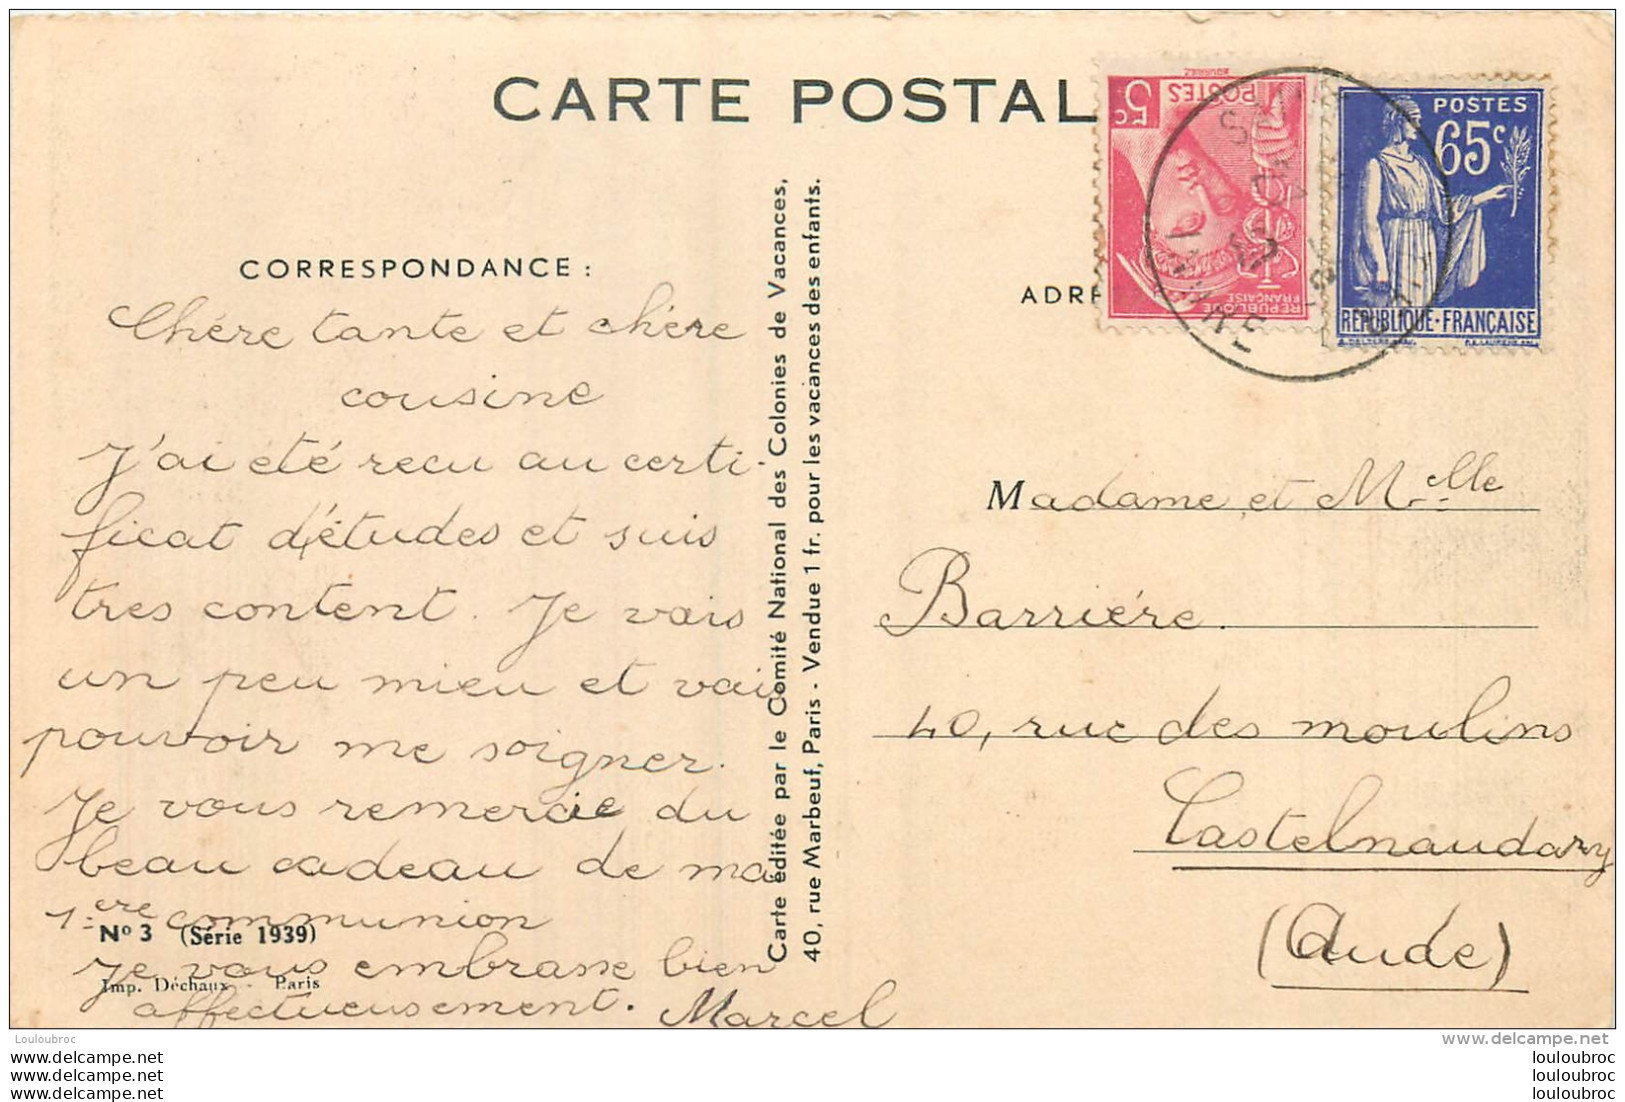 CARTE POSTAL
5c
POSTES
RÉPUBLIQUE
FRANÇAISE
POSTES
65c
RÉPUBLIQUE-FRANÇAISE
CORRESPONDANCE :
Chére tante et chére
cousine
J'ai été recu au certi-
ficat d'études et suis
tres content. Je vais
un peu mieu et vais
pouvoir me soigner.
Je vous remercie du
beau cadeau de ma
1ère communion
Je vous embrasse bien
affectueusement. Marcel
No 3 (Série 1939)
Imp. Déchaux - Paris
Carte éditée par le Comité National des Colonies de Vacances,
40, rue Marbeuf, Paris - Vendue 1 fr. pour les vacances des enfants.
ADRE
Madame et Melle
Barriére.
40, rue des moulins
Castelnaudary
(Aude)
Louloubroc
www.delcampe.net
www.delcampe.net
www.delcampe.net
www.delcampe.net
louloubroc
louloubroc
louloubroc